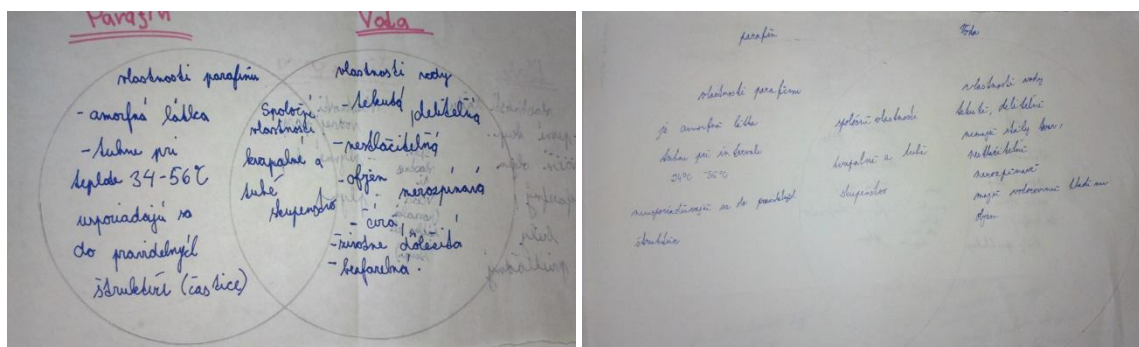 Parafín
Voda
vlastnosti parafínu
- amorfná látka
- tuhne pri
teplote 34-56℃
usporiadajú sa
do pravidelných
štruktúr (častice)
Spoločné
vlastnosti
kvapalné a
tuhé
skupenstvo
vlastnosti vody
- tekutá, deliteľná
- nestlačiteľná
- objem
nerozpínavá
- číra,
- životne dôležitá
- bezfarebná.
parafín
vlastnosti parafínu
je amorfná látka
tuhne pri intervale
34°C - 56°C
neusporiadavajú sa do pravidel.
štruktúr
spoločné vlastnosti
kvapalné a tuhé
skupenstvo
Voda
vlastnosti vody
tekuté, deliteľné
nemajú stály tvar,
nestlačiteľné
nerozpínavé
majú vodorovnú hladinu
objem